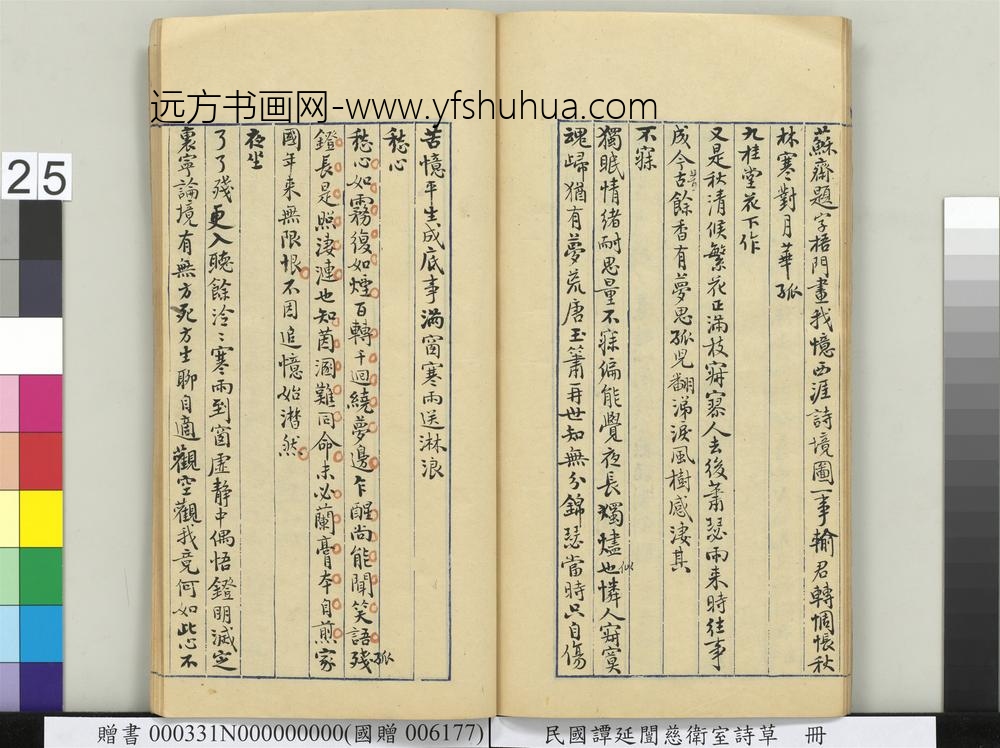 远方书画网-www.yfshuhua.com
25
蘇齋題字梧門畫我憶西涯詩境圖一事輸君轉惆悵秋
林寒對月華孤
九桂堂花下作
又是秋清候繁花正滿枝寂寥人去後蕭瑟雨来時往事
成今古昔餘香有夢思孤兒翻涕淚風樹感淒其
不寐
獨眠情緒耐思量不寐偏能覺夜長燭燼也似憐人寂寞
魂歸猶有夢荒唐玉簫再世知無分錦瑟當時只自傷
苦憶平生成底事滿窗寒雨送淋浪
愁心
愁心如霧復如煙百轉千迴繞夢邊乍醒尚能聞笑語殘孤
鐙長是照淒漣也知茵溷難同命未必蘭膏本自煎家
國年来無限恨不因追憶始潸然
夜坐
了了殘更入聽餘泠泠寒雨到窗虛静中偶悟鐙明滅定
裏寧論境有無方死方生聊自適觀空觀我竟何如此心不
贈書 000331N000000000(國贈 006177)
民國譚延闓慈衛室詩草 冊